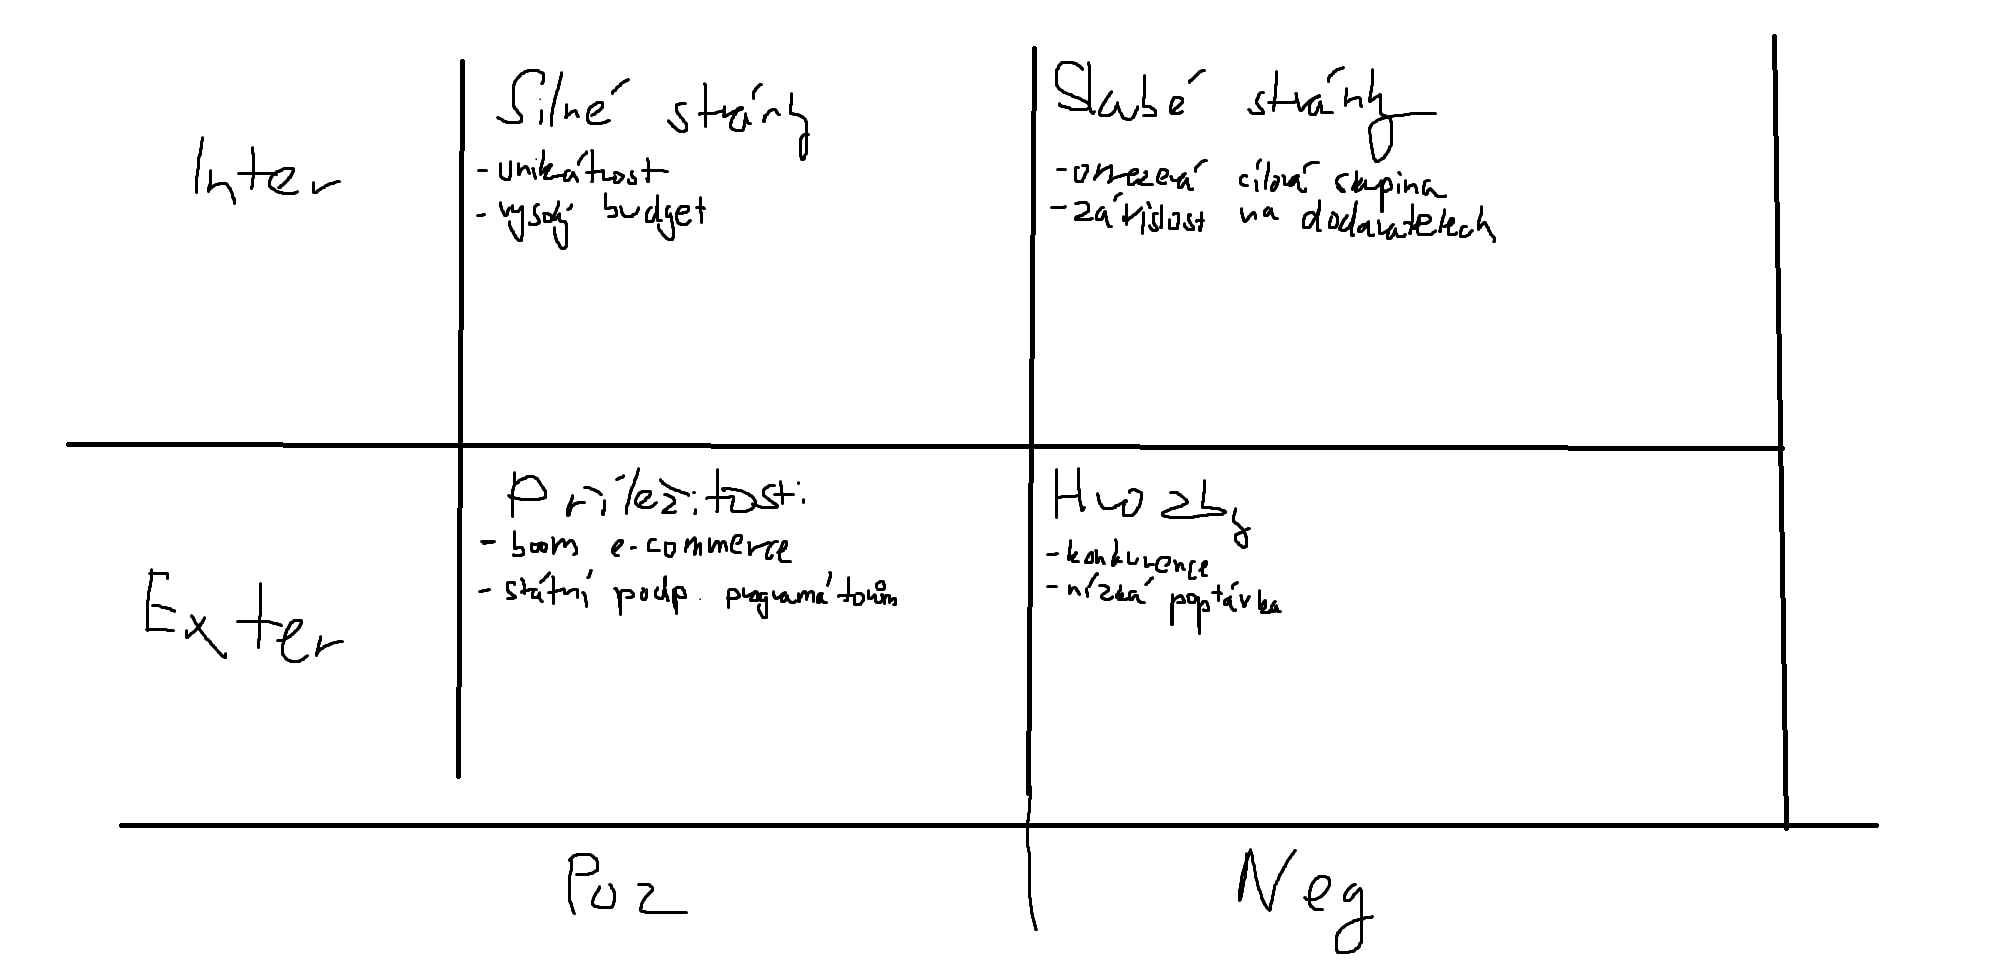 Inter
Silné strány
- unikátnost
- vysoký budget
Slabé stránky
- omezená cílová skupina
- závislost na dodavatelech
Exter
Příležitosti
- boom e-commerce
- státní podp. programátorům
Hrozby
- konkurence
- nízká poptávka
Poz
Neg